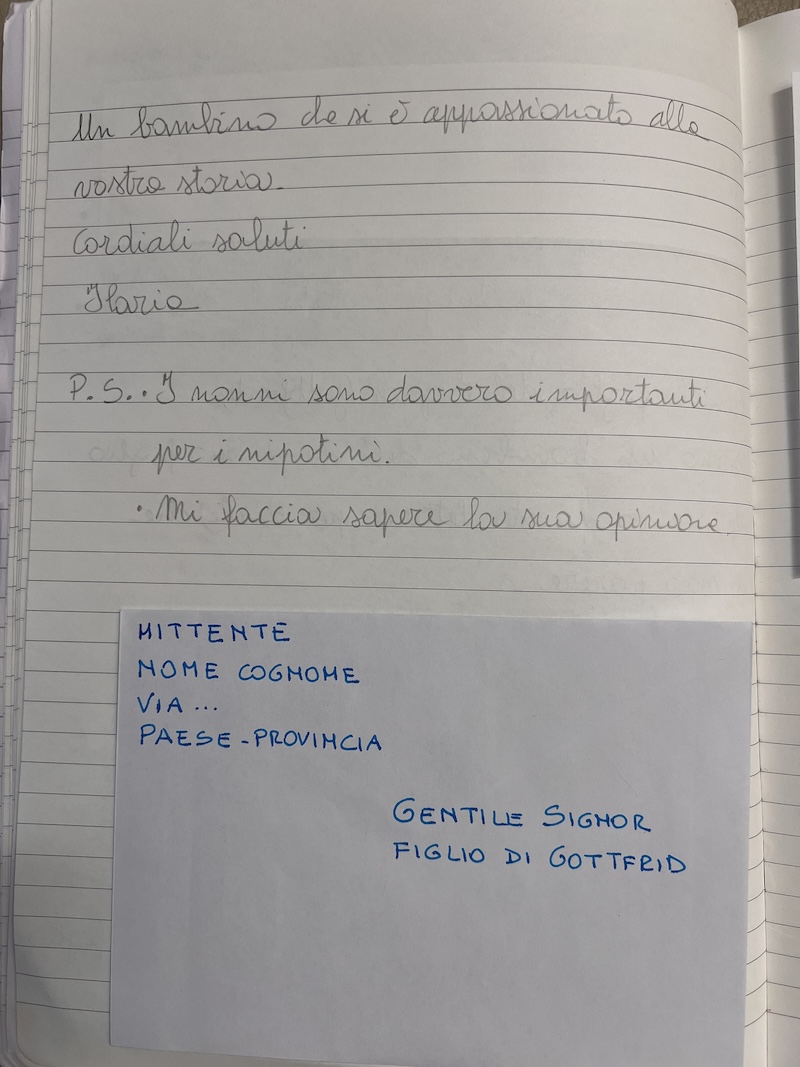 Un bambino che si è appassionato alla
vostra storia.
Cordiali saluti
Ilaria
P.S. • I nonni sono davvero importanti
per i nipotini.
• Mi faccia sapere la sua opinione
MITTENTE
NOME COGNOME
VIA ...
PAESE - PROVINCIA
GENTILE SIGNOR
FIGLIO DI GOTTFRID